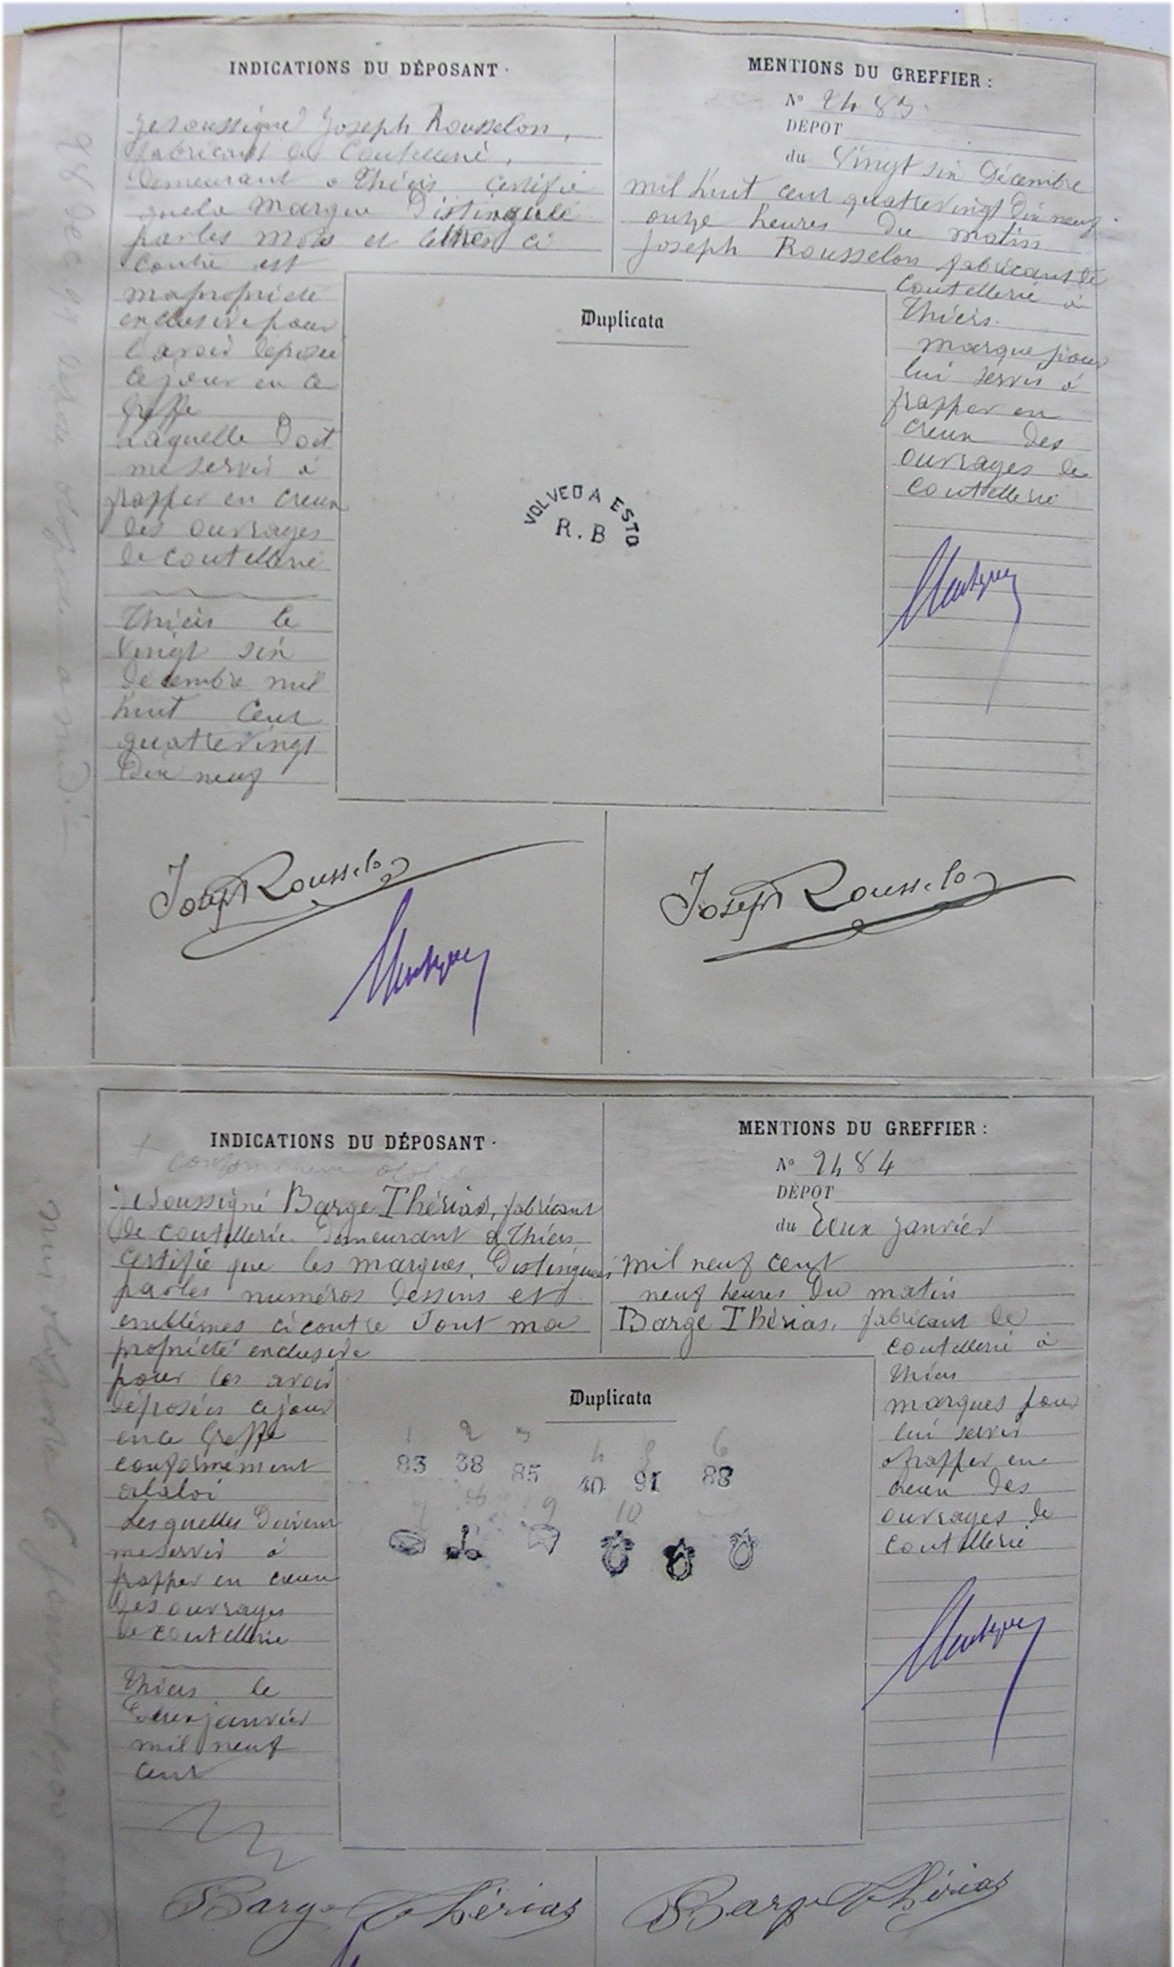 INDICATIONS DU DÉPOSANT.
Je soussigné Joseph Rousselon,
fabricant de Coutellerie,
demeurant a Thiers certifie
que la marque Distinguée
par les mots et lettres ci
contre est
ma propriété
exclusive pour
l'avoir déposée
ce jour en ce
Greffe
Laquelle Doit
me servir à
frapper en creux
des ouvrages
de coutellerie
Thiers le
Vingt six
décembre mil
huit cent
quatre vingt
Dix neuf
MENTIONS DU GREFFIER :
N° 2483
DÉPOT
du Vingt six Décembre
mil huit cent quatre vingt Dix neuf
onze heures du matin
Joseph Rousselon fabricant de
coutellerie à
Thiers.
marque pour
lui servir à
frapper en
creux des
ouvrages de
coutellerie
Duplicata
VOLVEDA ESTO
R. B
Joseph Rousselon
Joseph Rousselon
INDICATIONS DU DÉPOSANT.
Je soussigné Barge Thérias, fabricant
de coutellerie demeurant à Thiers
certifie que les marques Distinguées
par les numéros dessins et
emblêmes ci contre sont ma
propriété exclusive
pour les avoir
déposées ce jour
en ce Greffe
conformément
a la loi
Lesquelles Doivent
me servir à
frapper en creux
des ouvrages
de coutellerie
Thiers le
Deux janvier
mil neuf
cent
MENTIONS DU GREFFIER :
N° 2484
DÉPOT
du Deux Janvier
mil neuf cent
neuf heures du matin
Barge Thérias, fabricant de
coutellerie à
Thiers
marques pour
lui servir
a frapper en
creux des
ouvrages de
coutellerie
Duplicata
1 2 3 4 5 6
83 38 85 40 91 88
7 9 10
Barge Thérias
Barge Thérias